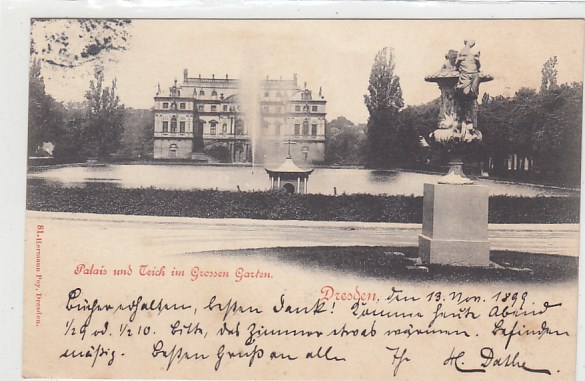 Palais und Teich im Grossen Garten.
Dresden, den 13. Nov. 1899
Bücher erhalten, besten Dank! Komme heute Abend
1/29 od. 1/210. Bitte, das Zimmer etwas wärmen. Befinden
mäßig. Besten Gruß an alle Ihr H. Dathe
81. Hermann Poy, Dresden.